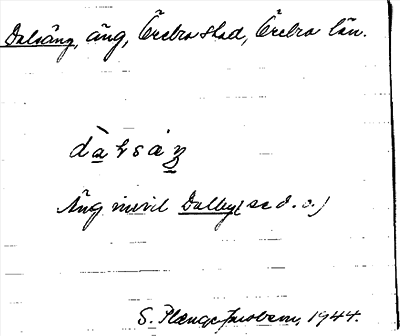 Dalsäng, äng, Örebro stad, Örebro län.
dàḷsáŋ
Äng invid Dalby (se d. o.)
S. Plænge Jacobson, 1944.